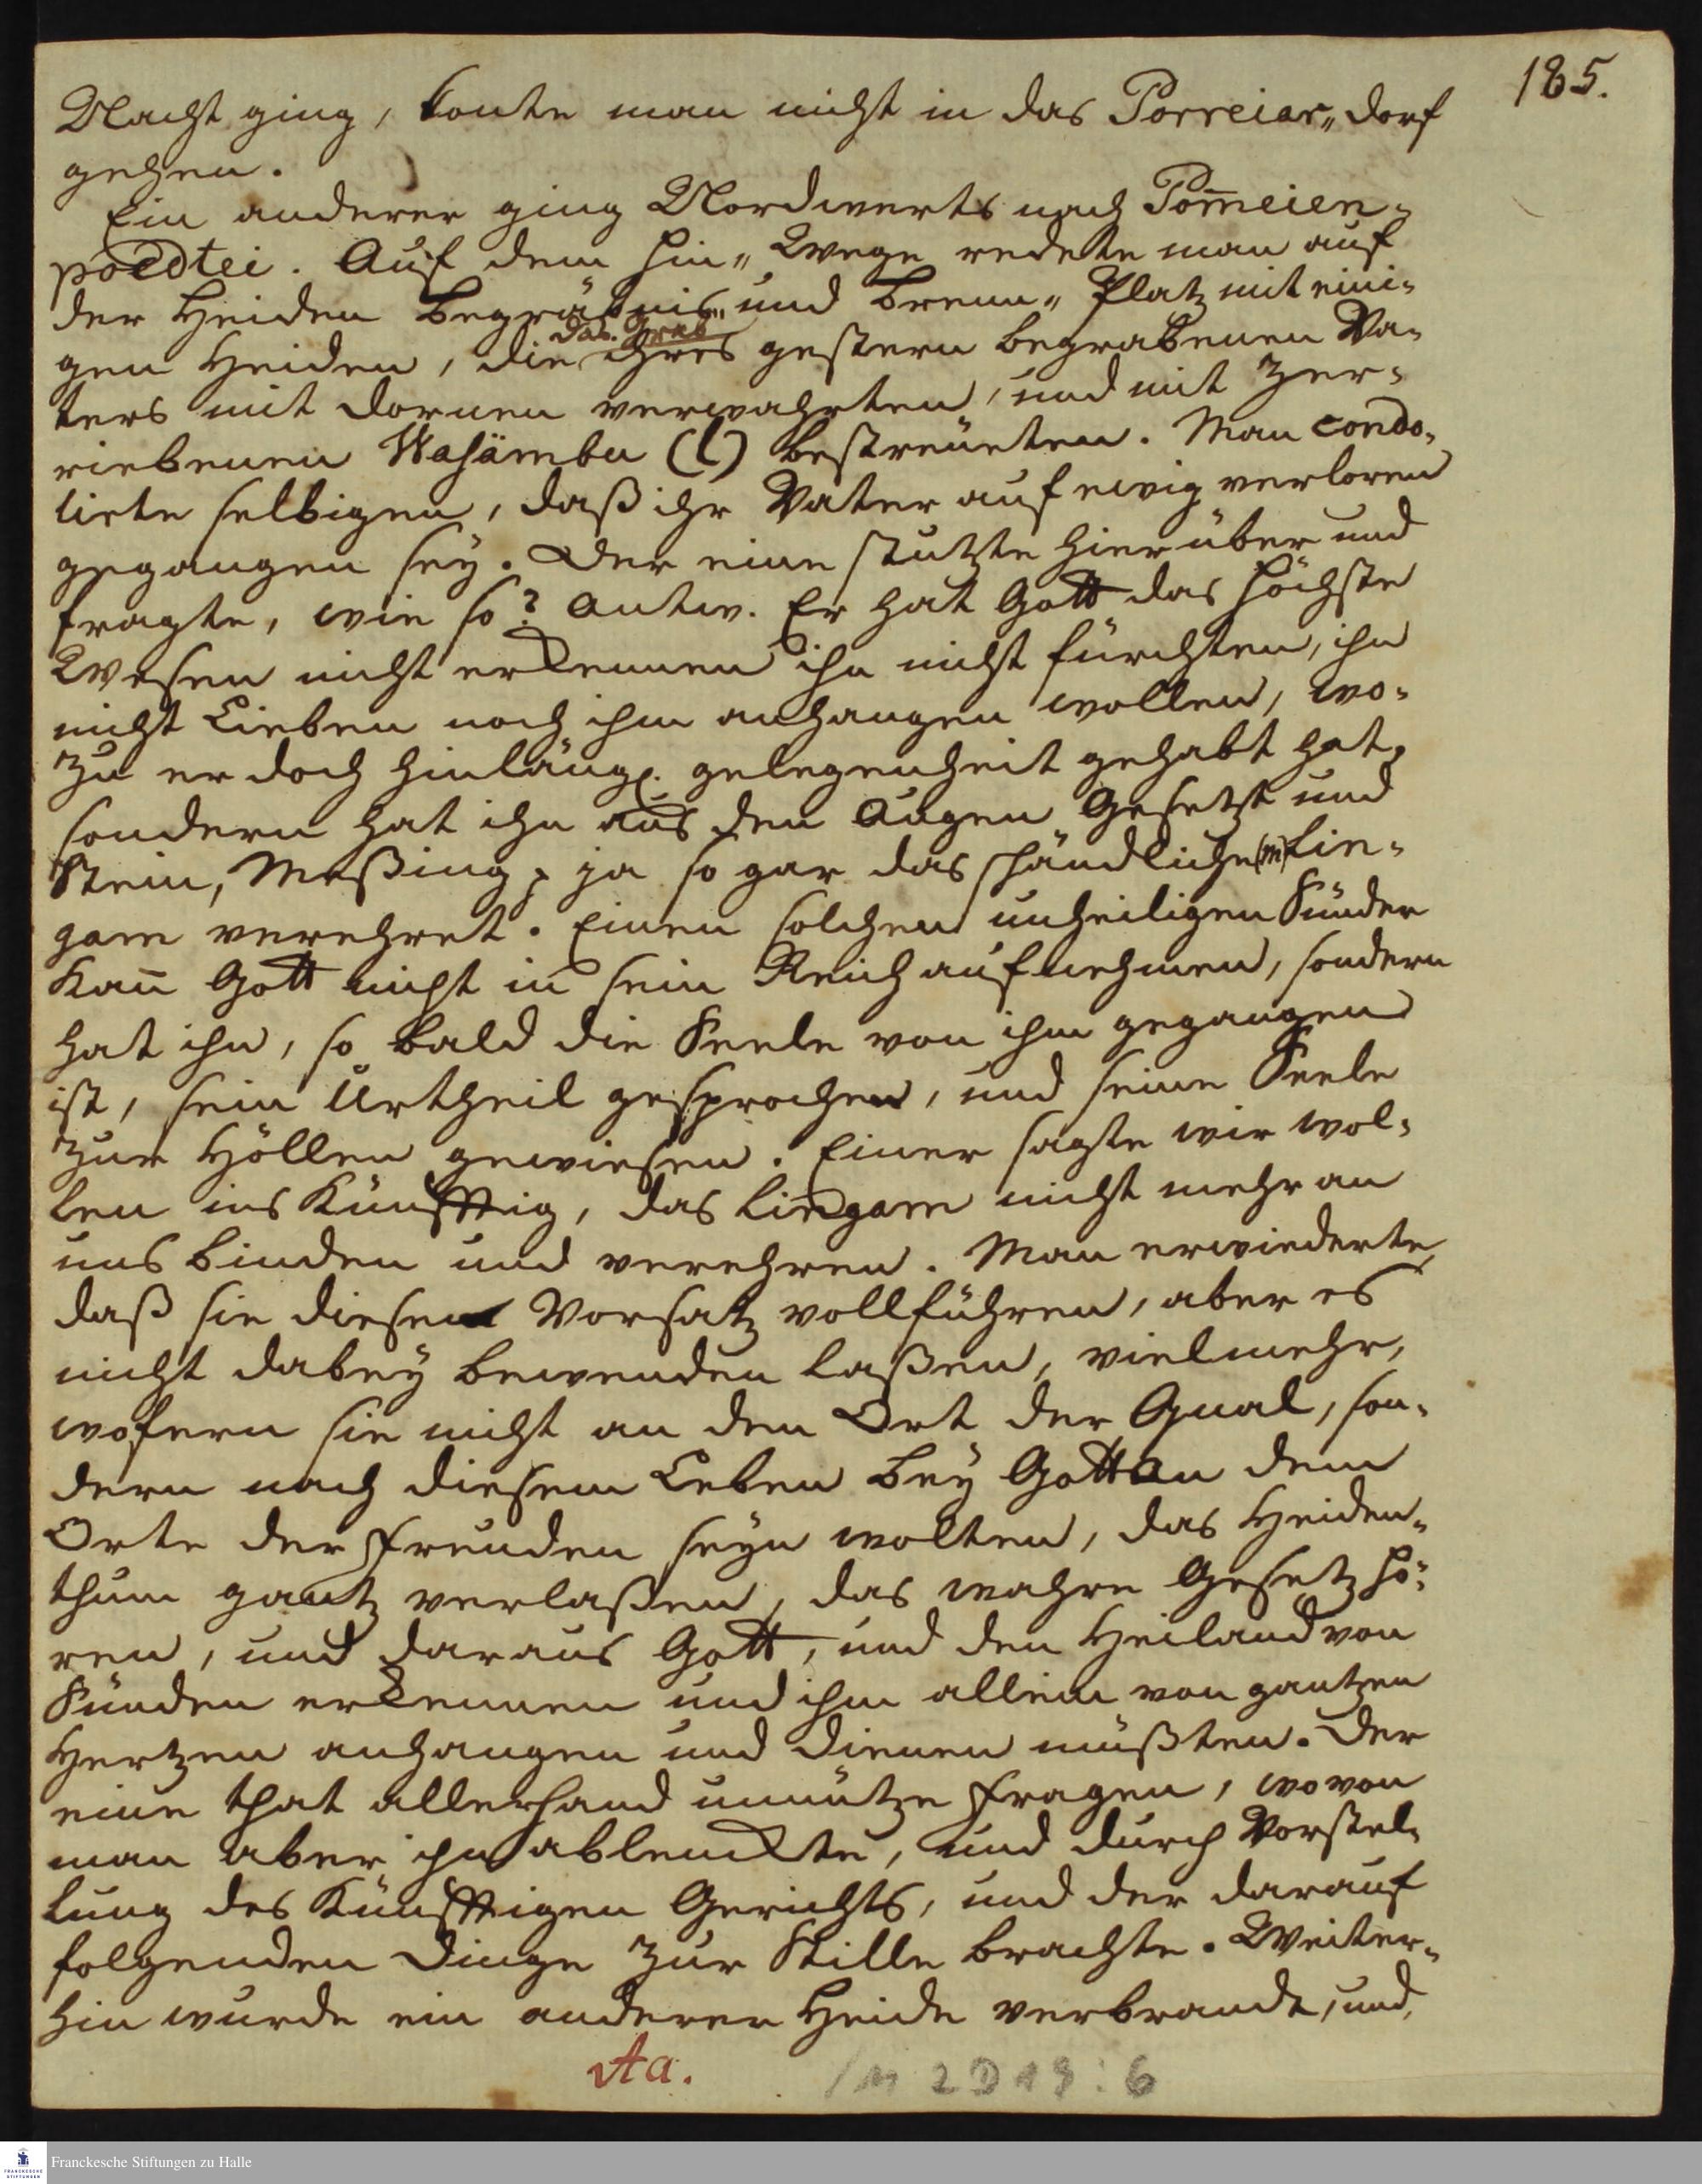 185.
Nacht ging, konte man nicht in das Porreiar„dorf
gehen.
Ein anderer ging Nordwerts nach Pom̅eien-
poedtei. Auf dem Hin„Wege redete man auf
der Heiden Begräbnis„ und Brenn„Platz mit eini-
gen Heiden, die das Grab ihres gestern begrabenen Va-
ters mit Dornen verwahrten, und mit zer-
riebenen Wasämbu (l) bestreueten. Man condo-
lirte selbigen, daß ihr Vater auf ewig verloren
gegangen sey. Der eine stutzte hierüber und
fragte, wie so? Antw. Er hat Gott das höchste
Wesen nicht erkennen ihn nicht fürchten, ihn
nicht Lieben noch ihm anhangen wollen, wo-
zu er doch hinlängl. gelegenheit gehabt hat,
sondern hat ihn aus den Augen Gesetzt und
Stein, Meßing, ja so gar das schändliche (m) Lin-
gam verehret. Einen solchen unheiligen Sünder
kan̅ Gott nicht in sein Reich aufnehmen, sondern
hat ihn, so bald die Seele von ihm gegangen
ist, sein Urtheil gesprochen, und seine Seele
zur Höllen gewiesen. Einer sagte wir wol-
len ins Künfftig, das Lingam nicht mehr an
uns binden und verehren. Man erwiederte,
daß sie diesen Vorsatz vollführen, aber es
nicht dabey bewenden laßen, vielmehr,
wofern sie nicht an dem Ort der Qual, son-
dern nach diesem Leben bey Gott an dem
Orte der Freuden seyn wolten, das Heiden-
thum gantz verlaßen, das wahre Gesetz hö-
ren, und daraus Gott, und den Heiland von
Sünden erkennen und ihm allein von gantzen
Hertzen anhangen und dienen müßten. Der
eine that allerhand unnütze Fragen, wovon
man aber ihn ablenckte, und durch Vorstel-
lung des Künfftigen Gerichts, und der darauf
folgenden Dinge zur Stille brachte. Weiter-
hin wurde ein anderer Heide verbrandt, und
Aa.
/M 2 D 19 : 6
Franckesche Stiftungen zu Halle